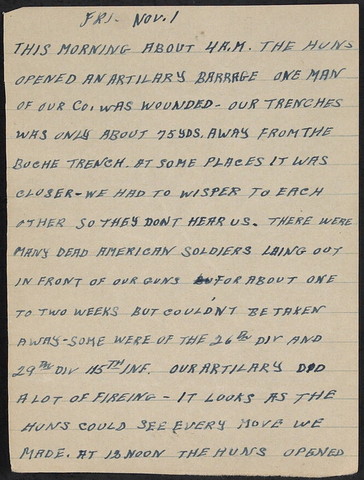 FRI. NOV. 1
THIS MORNING ABOUT 4 A.M. THE HUNS
OPENED AN ARTILARY BARRAGE ONE MAN
OF OUR CO. WAS WOUNDED - OUR TRENCHES
WAS ONLY ABOUT 75 YDS. AWAY FROM THE
BUCHE TRENCH. AT SOME PLACES IT WAS
CLOSER - WE HAD TO WISPER TO EACH
OTHER SO THEY DONT HEAR US. THERE WERE
MANY DEAD AMERICAN SOLDIERS LAING OUT
IN FRONT OF OUR GUNS FOR ABOUT ONE
TO TWO WEEKS BUT COULD'NT BE TAKEN
AWAY - SOME WERE OF THE 26TH DIV AND
29TH DIV 115TH INF. OUR ARTILARY DID
A LOT OF FIREING - IT LOOKS AS THE
HUNS COULD SEE EVERY MOVE WE
MADE. AT 12 NOON THE HUNS OPENED